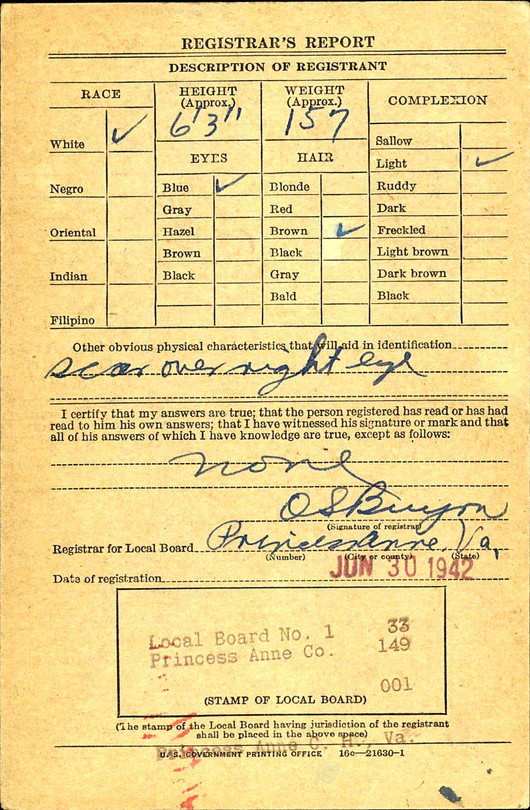 REGISTRAR'S REPORT
DESCRIPTION OF REGISTRANT
RACE
HEIGHT (Approx.)
WEIGHT (Approx.)
COMPLEXION
6'3"
157
White ✓
EYES
HAIR
Sallow
Light ✓
Negro
Blue ✓
Blonde
Ruddy
Gray
Red
Dark
Oriental
Hazel
Brown ✓
Freckled
Brown
Black
Light brown
Indian
Black
Gray
Dark brown
Bald
Black
Filipino
Other obvious physical characteristics that will aid in identification
scar over right eye
I certify that my answers are true; that the person registered has read or has had
read to him his own answers; that I have witnessed his signature or mark and that
all of his answers of which I have knowledge are true, except as follows:
none
O S
(Signature of registrar)
Registrar for Local Board Princess Anne, Va,
(Number) (City or county) (State)
Date of registration JUN 30 1942
Local Board No. 1 33
Princess Anne Co. 149
001
(STAMP OF LOCAL BOARD)
(The stamp of the Local Board having jurisdiction of the registrant
shall be placed in the above space)
Princess Anne C. H., Va.
U. S. GOVERNMENT PRINTING OFFICE 16c—21630-1